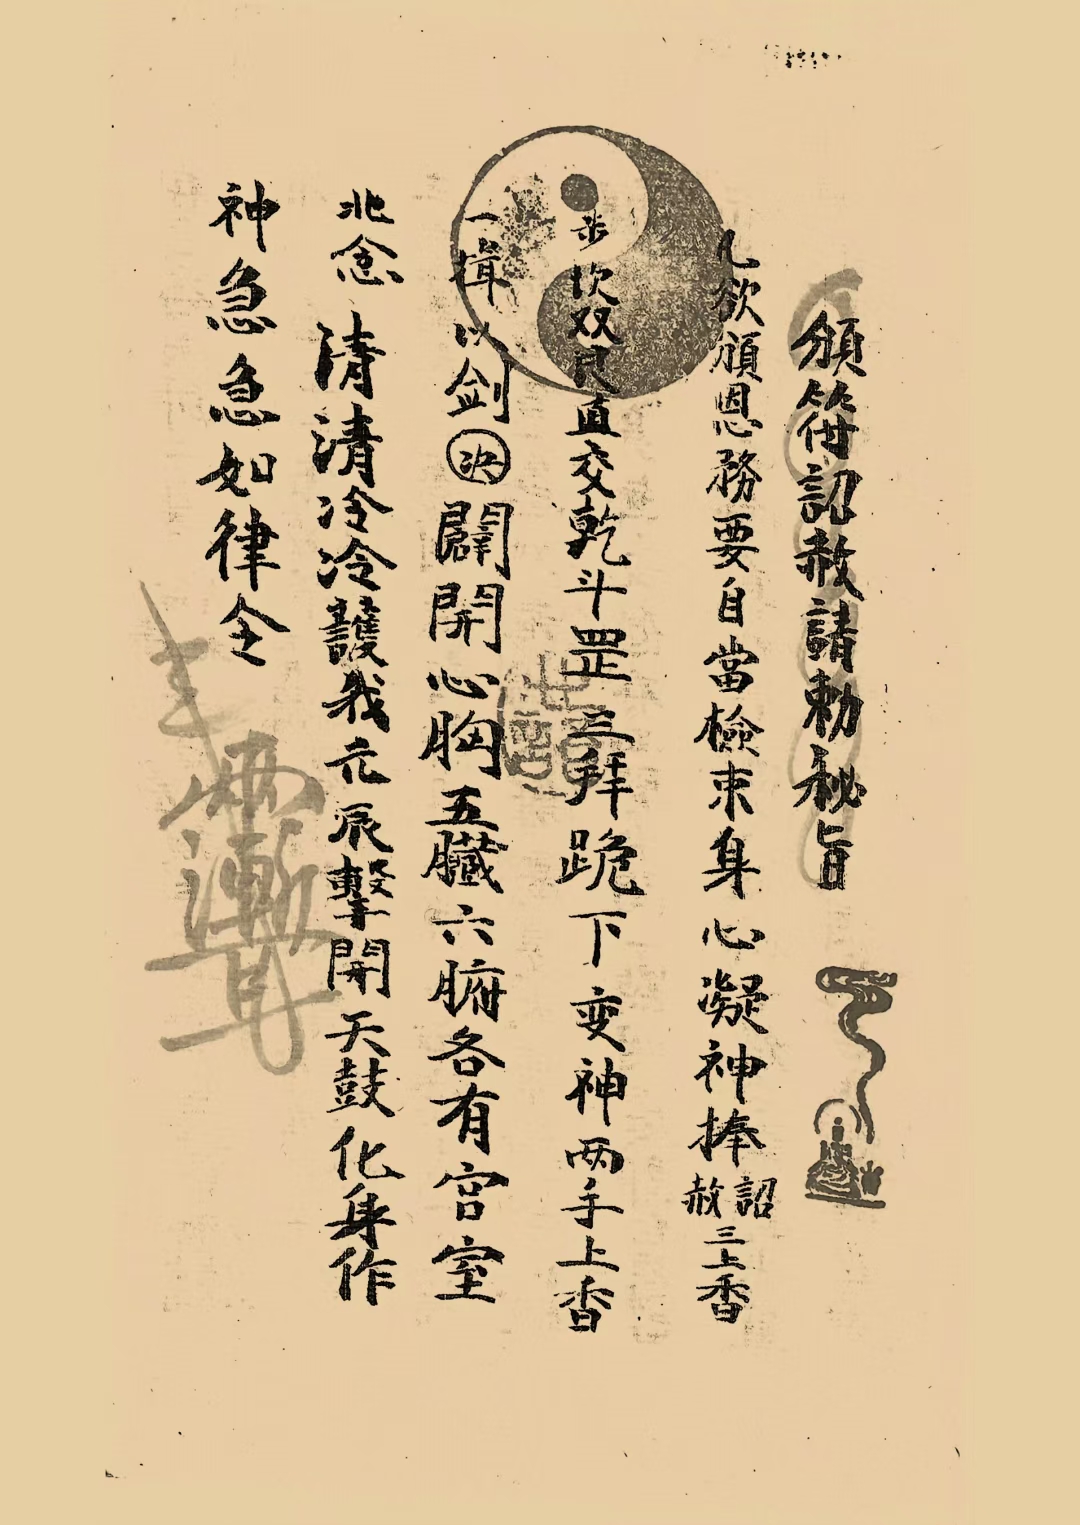 頒符詔赦請勅秘旨
凡欲頒恩務要自當檢束身心凝神捧詔赦三上香
步次双足直交乾斗罡三拜跪下变神两手上香
一揖以剑決闢開心胸五臟六腑各有宫室
北念清清冷冷護我元辰擊開天鼓化身作
神急急如律令